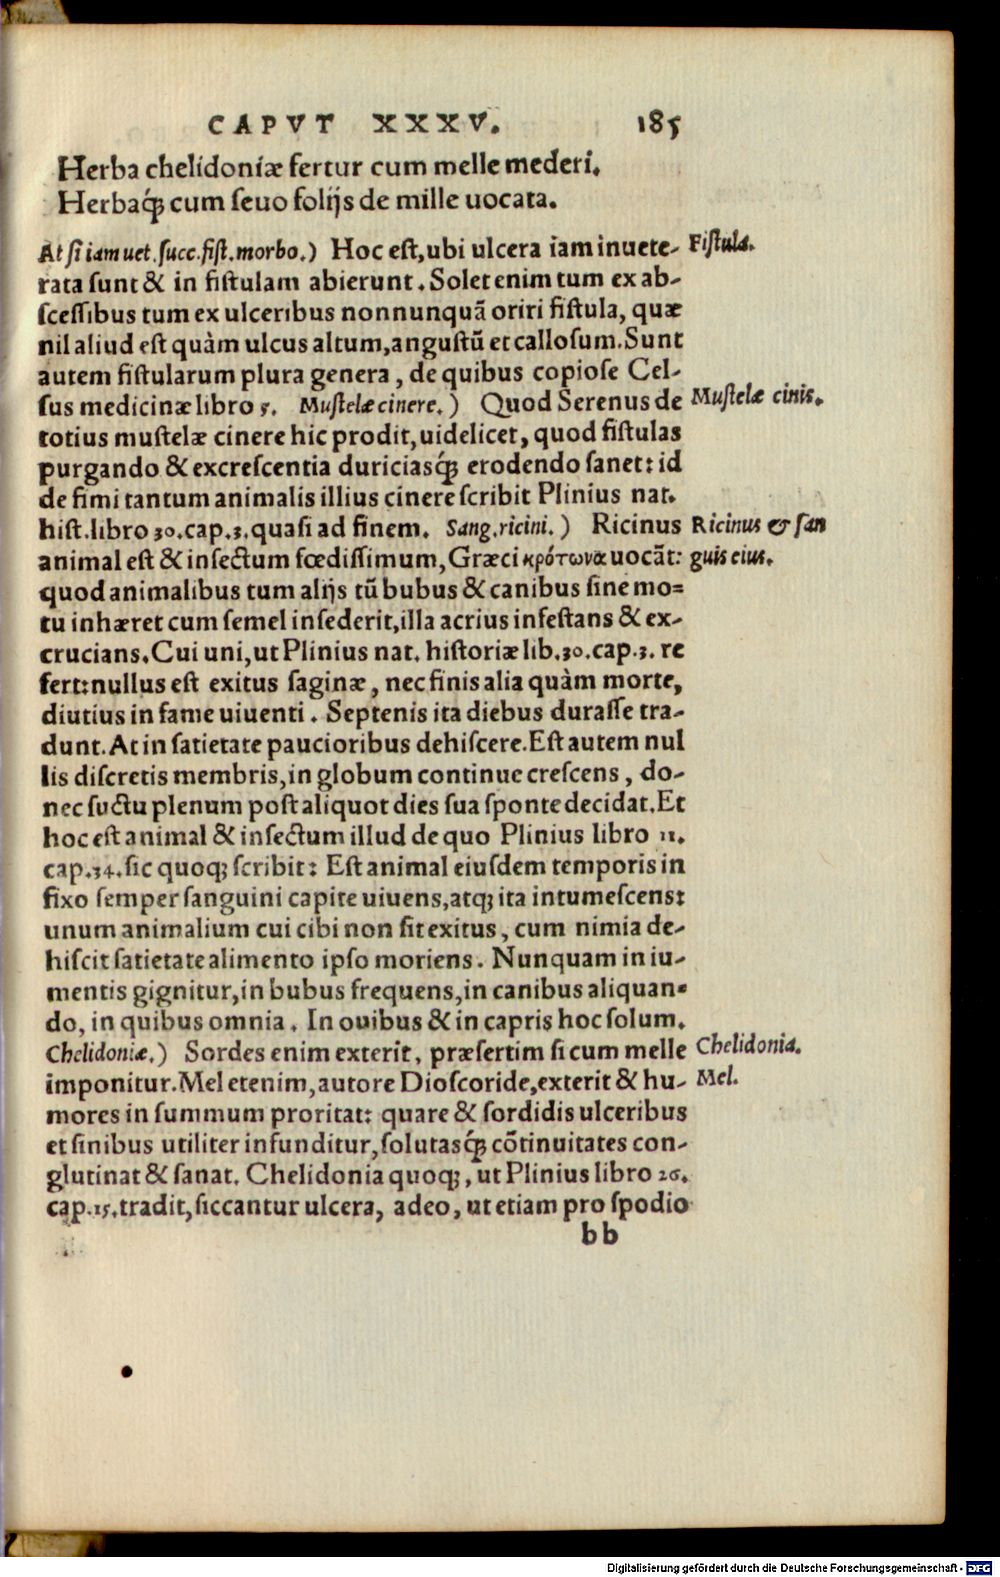 CAPVT XXXV. 185
Herba chelidoniæ fertur cum melle mederi.
Herbaq́; cum seuo folijs de mille uocata.
At si iam uet. succ. fist. morbo.) Hoc est, ubi ulcera iam inuete- Fistula.
rata sunt & in fistulam abierunt. Solet enim tum ex ab-
scessibus tum ex ulceribus nonnunquã oriri fistula, quæ
nil aliud est quàm ulcus altum, angustũ et callosum. Sunt
autem fistularum plura genera, de quibus copiose Cel-
sus medicinæ libro 5. Mustelæ cinere.) Quod Serenus de Mustelæ cinis.
totius mustelæ cinere hic prodit, uidelicet, quod fistulas
purgando & excrescentia duriciasq́; erodendo sanet: id
de fimi tantum animalis illius cinere scribit Plinius nat.
hist. libro 30. cap. 3. quasi ad finem. Sang. ricini.) Ricinus Ricinus & san
animal est & insectum fœdissimum, Græci κρότωνα uocãt: guis eius.
quod animalibus tum alijs tũ bubus & canibus sine mo=
tu inhæret cum semel insederit, illa acrius infestans & ex-
crucians. Cui uni, ut Plinius nat. historiæ lib. 30. cap. 3. re
fert: nullus est exitus saginæ, nec finis alia quàm morte,
diutius in fame uiuenti. Septenis ita diebus durasse tra-
dunt. At in satietate paucioribus dehiscere. Est autem nul
lis discretis membris, in globum continue crescens, do-
nec suctu plenum post aliquot dies sua sponte decidat. Et
hoc est animal & insectum illud de quo Plinius libro 11.
cap. 34. sic quoq; scribit: Est animal eiusdem temporis in
fixo semper sanguini capite uiuens, atq; ita intumescens:
unum animalium cui cibi non sit exitus, cum nimia de-
hiscit satietate alimento ipso moriens. Nunquam in iu-
mentis gignitur, in bubus frequens, in canibus aliquan=
do, in quibus omnia. In ouibus & in capris hoc solum.
Chelidoniæ.) Sordes enim exterit, præsertim si cum melle Chelidonia.
imponitur. Mel etenim, autore Dioscoride, exterit & hu- Mel.
mores in summum proritat: quare & sordidis ulceribus
et sinibus utiliter infunditur, solutasq́; cõtinuitates con-
glutinat & sanat. Chelidonia quoq;, ut Plinius libro 26.
cap. 15. tradit, siccantur ulcera, adeo, ut etiam pro spodio
bb
Digitalisierung gefördert durch die Deutsche Forschungsgemeinschaft - DFG